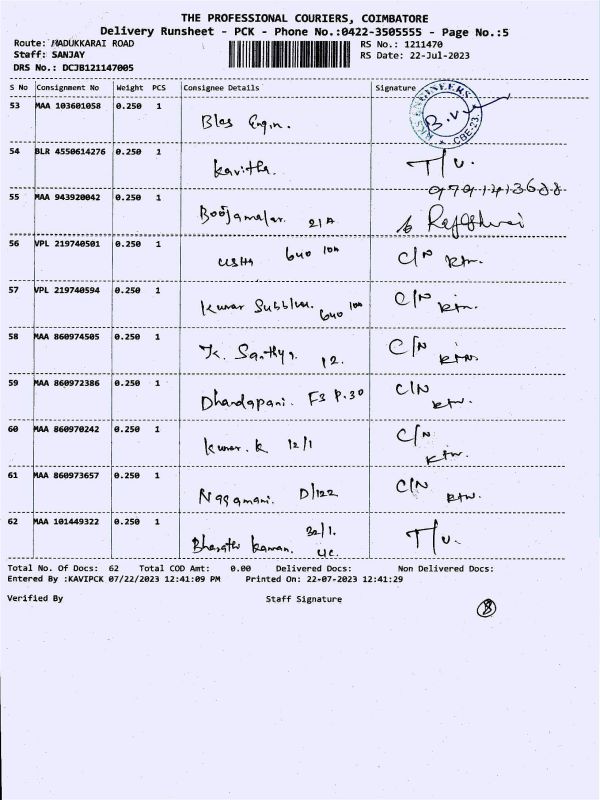 THE PROFESSIONAL COURIERS, COIMBATORE
Delivery Runsheet - PCK - Phone No.:0422-3505555 - Page No.:5
Route: MADUKKARAI ROAD RS No.: 1211470
Staff: SANJAY RS Date: 22-Jul-2023
DRS No.: DCJB121147005
S No Consignment No Weight PCS Consignee Details Signature
53 MAA 103601058 0.250 1
Engin. B.V
ENGINEERS CBE-23.
54 BLR 4550614276 0.250 1
Kavitha. T/U.
55 MAA 943920042 0.250 1
21A
56 VPL 219740501 0.250 1
640 10A C/N
57 VPL 219740594 0.250 1
Kumar 640 10A C/N
58 MAA 860974505 0.250 1
K. Santhya 12. C/N
59 MAA 860972386 0.250 1
Dhandapani. F3 P.30 C/N
60 MAA 860970242 0.250 1
Kumar. K 12/1 C/N
61 MAA 860973657 0.250 1
Nagamani. D/122 C/N
62 MAA 101449322 0.250 1
32/1.
Bharath T/U.
Total No. Of Docs: 62 Total COD Amt: 0.00 Delivered Docs: Non Delivered Docs:
Entered By :KAVIPCK 07/22/2023 12:41:09 PM Printed On: 22-07-2023 12:41:29
Verified By Staff Signature
8